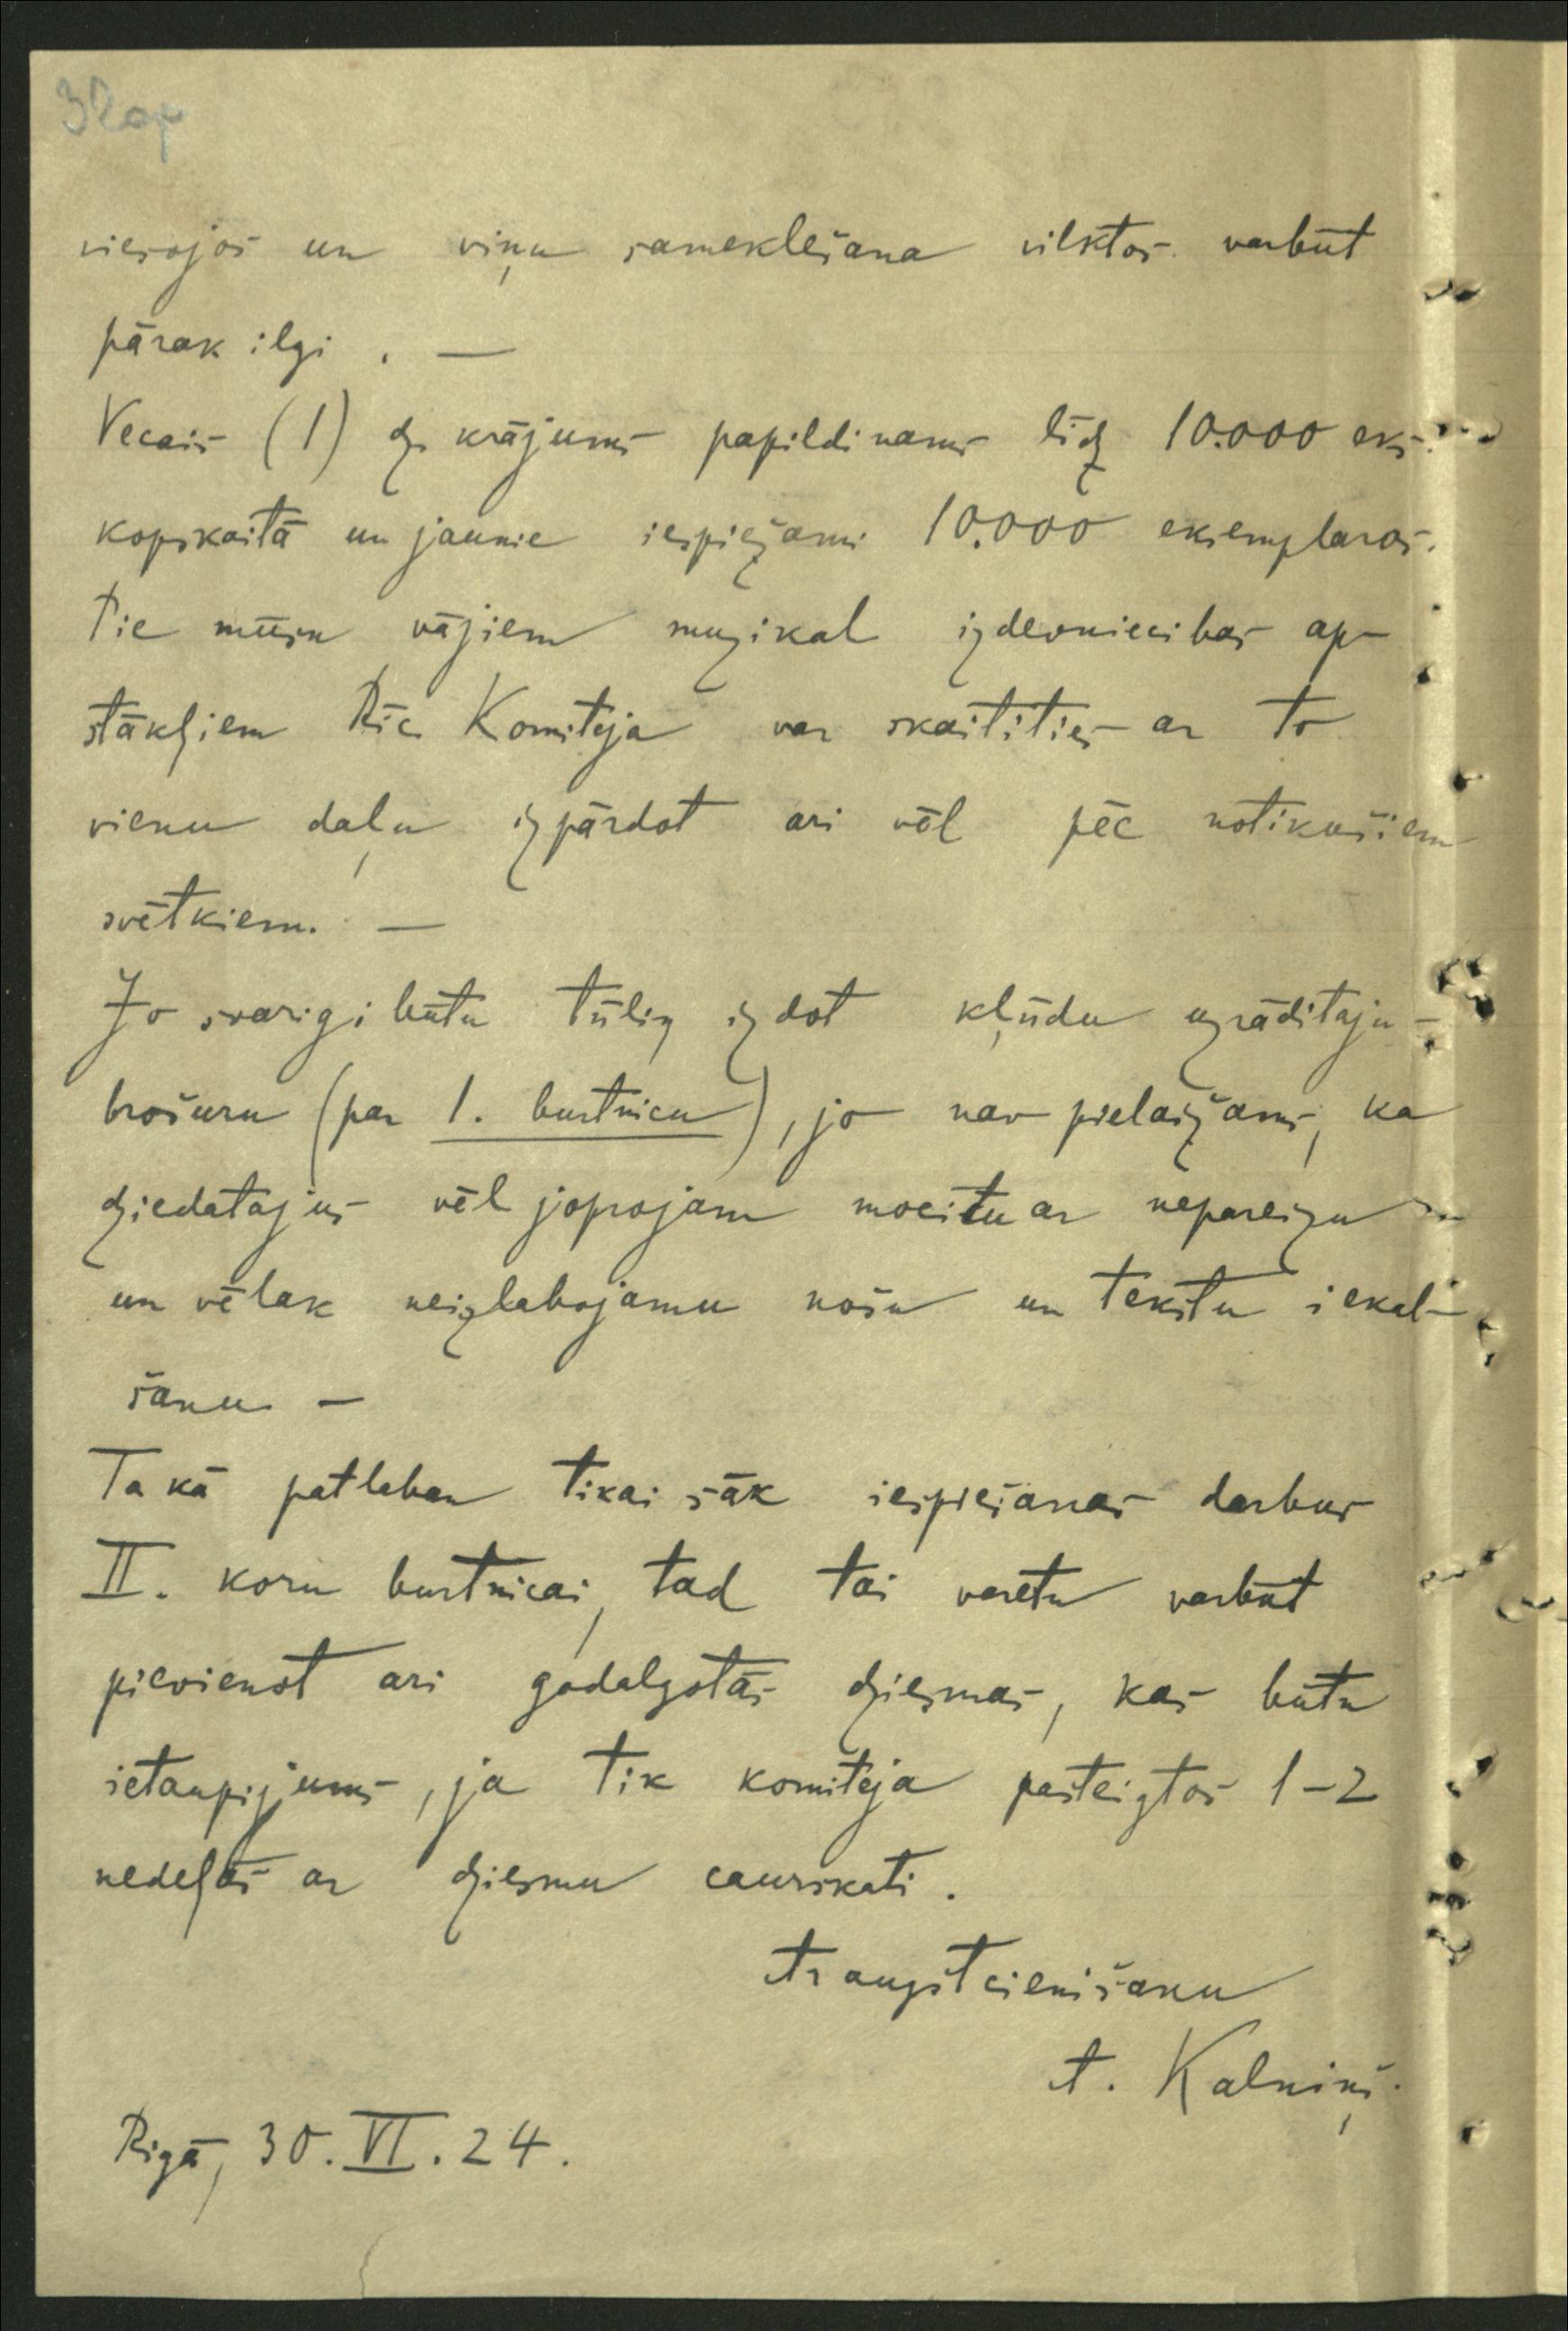 32op
viesojos un viņu sameklešana vilktos varbūt
pārak ilgi. —
Vecais (1) dz. krājums papildinams līdz 10.000 eks.
kopskaitā un jaunie iespiežami 10.000 eksemplaros.
Pie mūsu vājiem muzikal izdevniecibas ap-
stākļiem Rīc. Komiteja var skaitities ar to
vienu daļu izpārdot ari vēl pēc notikušiem
svētkiem. —
Jo svarigi būtu tūliņ izdot kļūdu uzrāditaju -
brošuru (par 1. burtnicu), jo nav pielaižams, ka
dziedatajus vēl joprojam mocitu ar nepareizu
un vēlak neizlabojamu nošu un tekstu iekal-
šanu. —
Ta kā patlaban tikai sāk iespiešanas darbus
II. koru burtnicai, tad tai varetu varbūt
pievienot ari godalgotās dziesmas, kas būtu
ietaupijums, ja tik komiteja pasteigtos 1-2
nedeļās ar dziesmu caurskati.
Ar augstcienišanu
A. Kalniņš.
Rigā, 30. VI. 24.